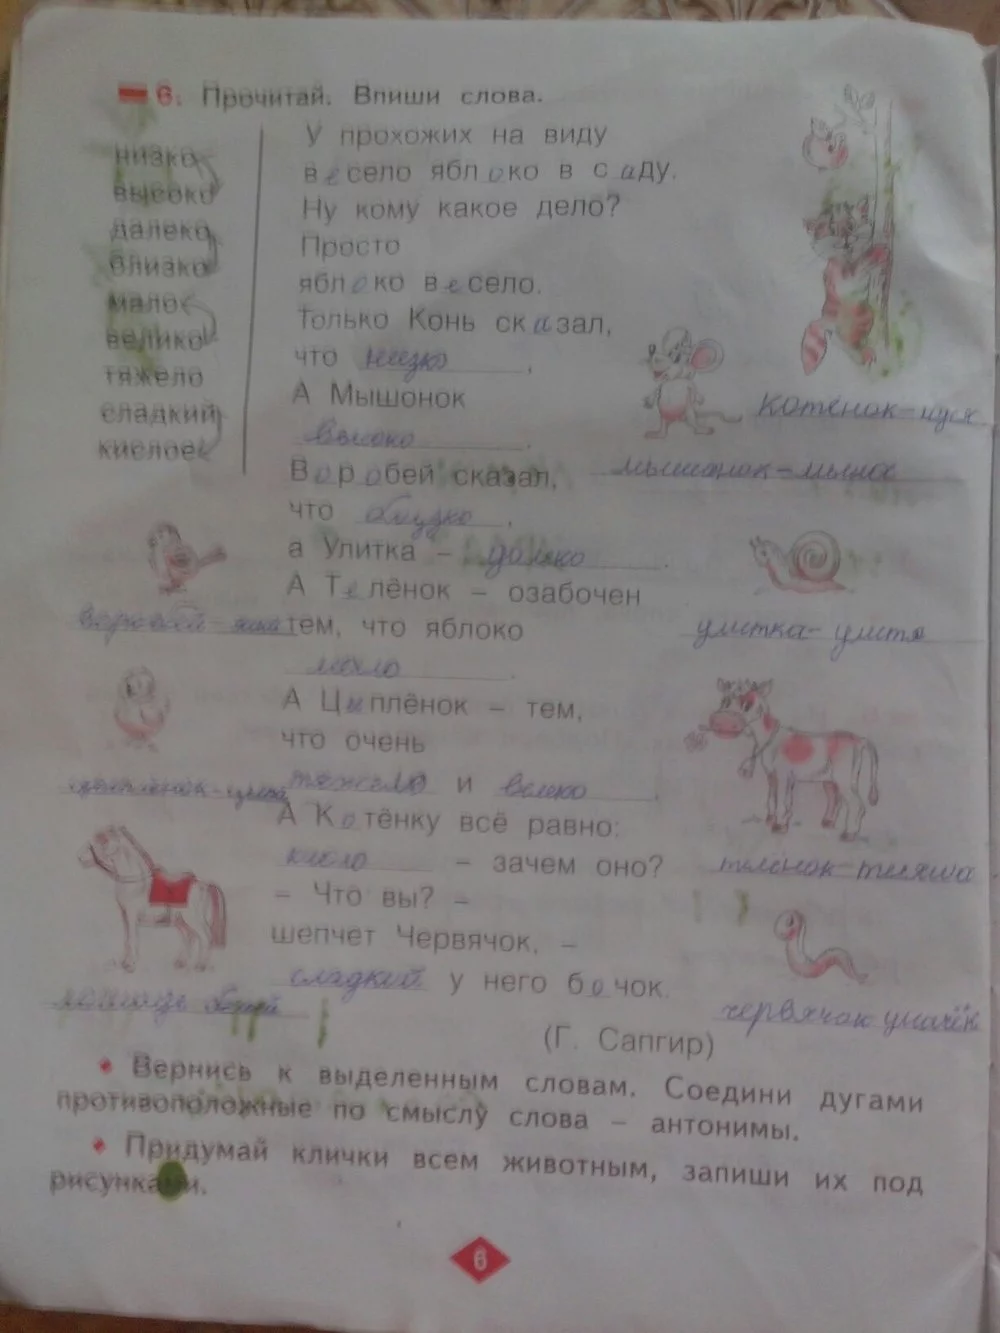 6. Прочитай. Впиши слова.
низко
высоко
далеко
близко
мало
велико
тяжело
сладкий
кислое
У прохожих на виду
весело яблоко в саду.
Ну кому какое дело?
Просто
яблоко весело.
Только Конь сказал,
что низко,
А Мышонок
высоко.
Воробей сказал,
что близко,
а Улитка – далеко.
А Телёнок – озабочен
тем, что яблоко
мало.
А Цыплёнок – тем,
что очень
тяжело и велико.
А Котёнку всё равно:
кисло – зачем оно?
– Что вы? –
шепчет Червячок, –
сладкий у него бочок.
(Г. Сапгир)
котёнок-пуся
мышонок-
воробей
улитка-улитя
телёнок-
лошадь
червячок
• Вернись к выделенным словам. Соедини дугами
противоположные по смыслу слова – антонимы.
• Придумай клички всем животным, запиши их под
рисунками.
6